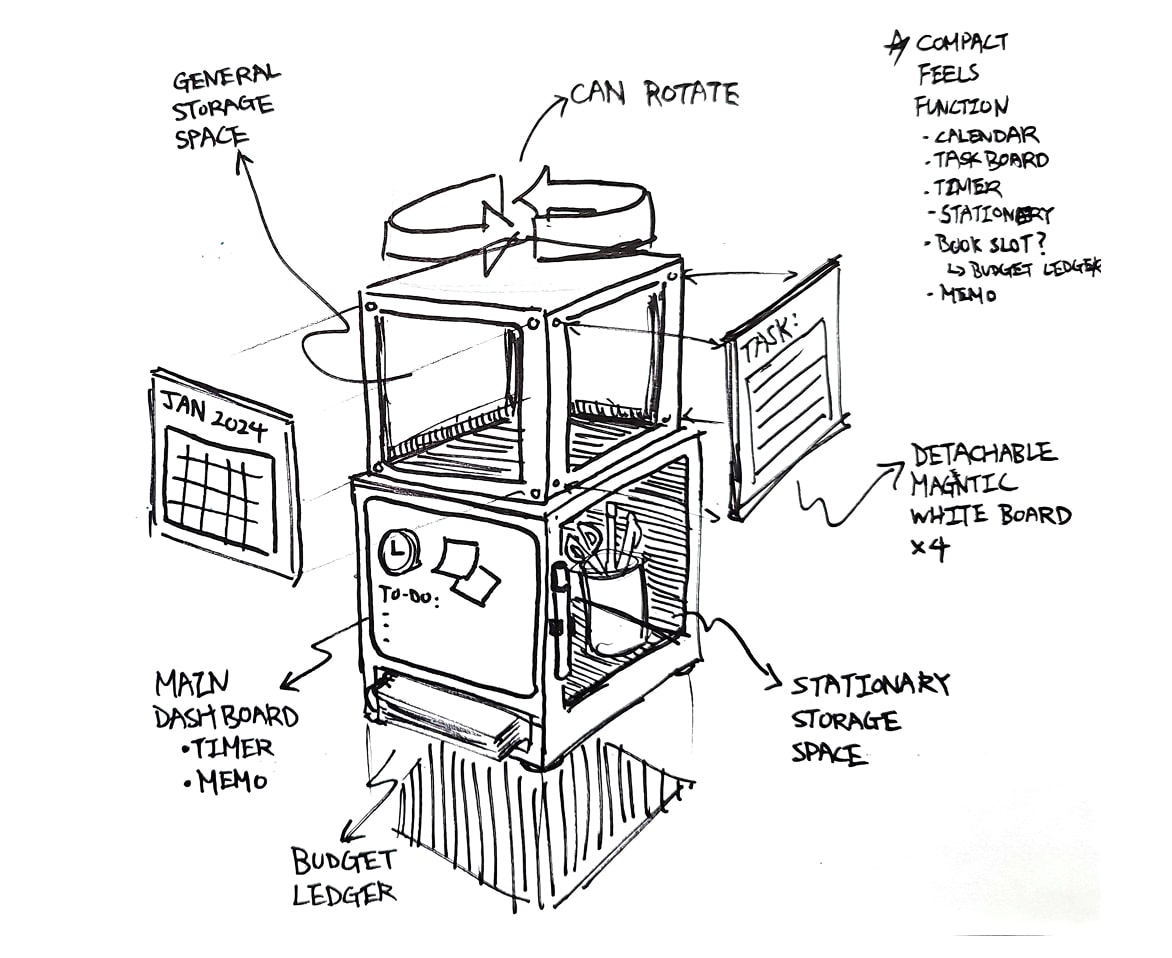 GENERAL
STORAGE
SPACE
CAN ROTATE
COMPACT
FEELS
FUNCTION
- CALENDAR
- TASK BOARD
- TIMER
- STATIONERY
- BOOK SLOT?
↳ BUDGET LEDGER
- MEMO
JAN 2024
TASK:
DETACHABLE
& MAGNTIC
WHITE BOARD
x4
TO-DO:
MAIN
DASHBOARD
• TIMER
• MEMO
STATIONARY
STORAGE
SPACE
BUDGET
LEDGER